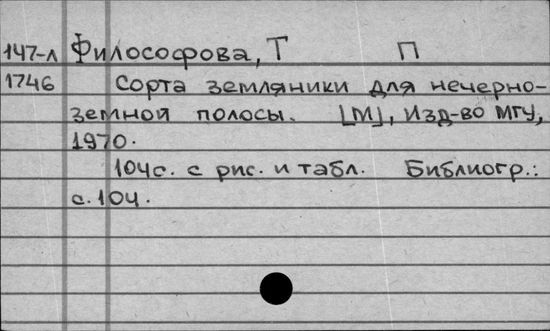 147-л Философова, Т П
1746 Сорта земляники для нечерно-
земной полосы. [М], Изд-во МГУ,
1970.
104с. с рис. и табл. Библиогр.:
с.104.